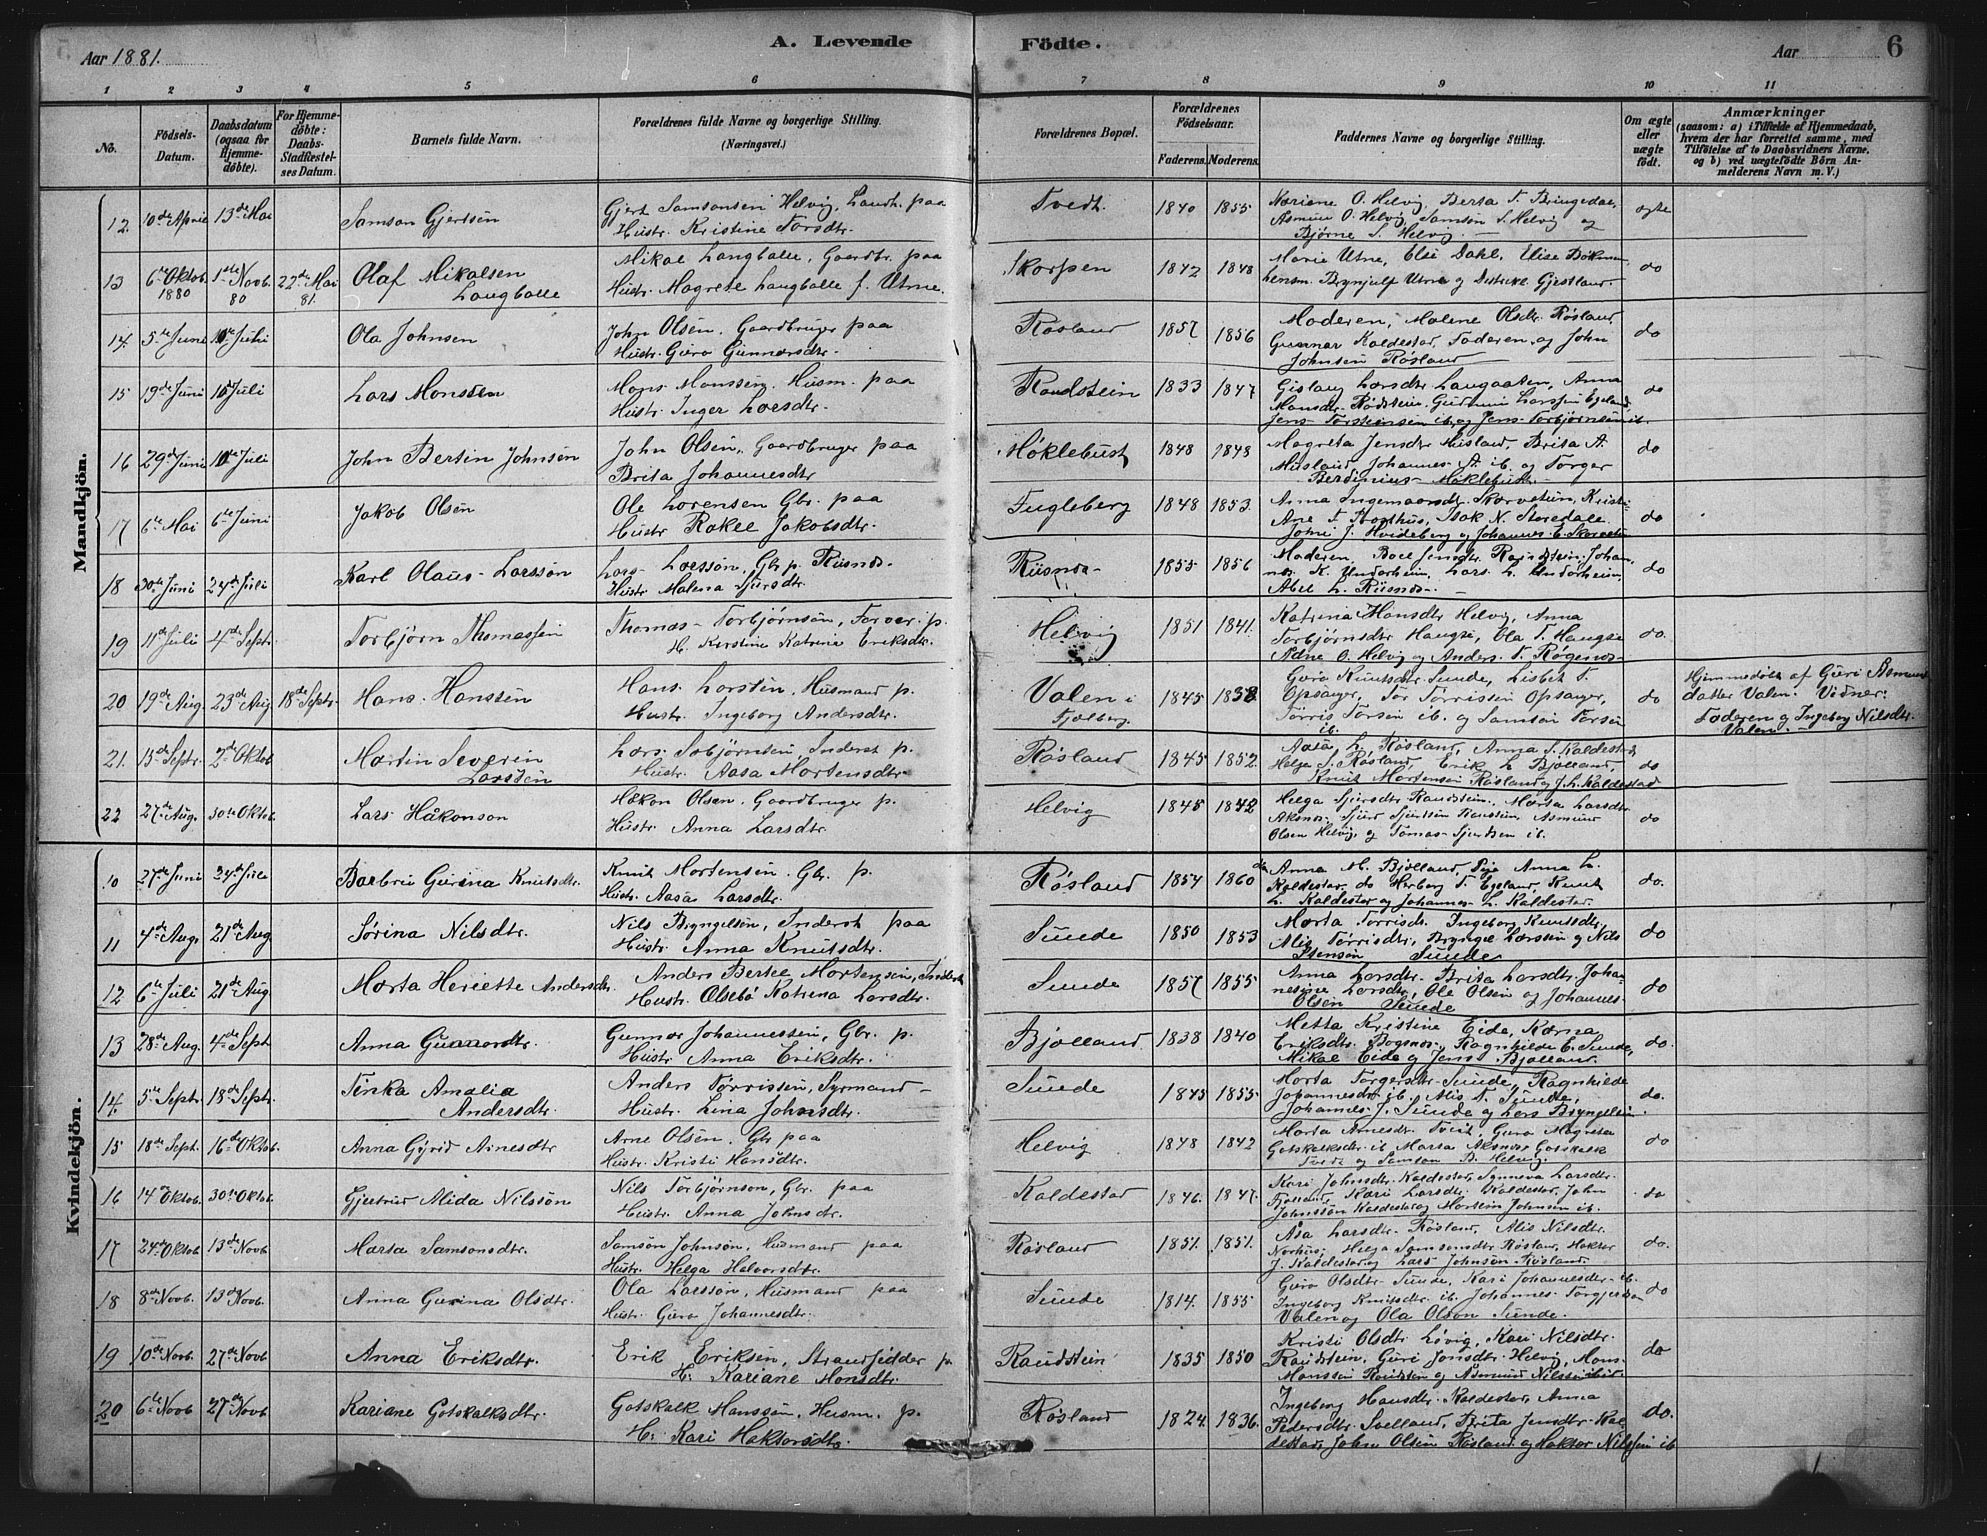 Aar 1881.
A. Levende Födte.
Aar
6
1 2 3 4 5 6 7 8 9 10 11
No.
Födsels-Datum.
Daabsdatum (ogsaa for Hjemme-döbte).
For Hjemme-döbte: Daabs-Stadfæstel-ses Datum.
Barnets fulde Navn.
Forældrenes fulde Navne og borgerlige Stilling. (Næringsvei.)
Forældrenes Bopæl.
Forældrenes Födselsaar.
Faderens. Moderens.
Faddernes Navne og borgerlige Stilling.
Om ægte eller uægte födt.
Anmærkninger
(saasom: a) i Tilfælde af Hjemmedaab,
hvem der har forrettet samme, med
Tilföielse af to Daabsvidners Navne,
og b) ved uægtefödte Börn An-
melderens Navn m. V.)
Mandkjön.
12. 10de April 13de Mai Samson Gjertsen
Gjert Samsonsen Helvig, Landh. paa
Hustr. Kristine Torsdtr.
Tvedt. 1840 1855
Nariane O. Helvig, Berta T. Bringedal,
Asmun O. Helvig, Samson S. Helvig og
Bjørne S. Helvig.
ægte
13 6te Oktob. 1880 1ste Novb. 80 22de Mai 81. Olaf Mikalsen
Langballe
Mikal Langballe, Gaardbr. paa
Hustr. Magrete Langballe f. Utne.
Skorpen 1842 1848
Marie Utne, Elei Dahl, Elise Bökman
Lensm. Brynjulf Utne og Gjestland.
do
14. 5te Juni 10de Juli Ola Johnsen
John Olsen. Gaardbruger paa
Hustr. Guro Gunnarsdtr.
Røsland 1857 1856
Moderen, Malene Olsdr. Røsland,
Gunnar Kaldestad, Faderen, og John
Johnsen Røsland
do
15 19de Juni 10de Juli Lars Monssen
Mons Monssen, Husm. paa
Hustr. Inger Larsdtr.
Raudstein 1833 1847
Gislaug Larsdtr. Langaaten, Anna
Monsdtr. Rødstein, Gudmun Larssen Egeland,
Jens Torsteinsen ib. og Jens Torbjørnsen ib.
do
16 29de Juni 10de Juli John Bertin Johnsen
John Olsen, Gaardbruger paa
Brita Johannesdtr
Høklebust 1848 1848
Magreta Jensdtr Husland, Brita A.
Husland, Johannes A. ib. og Torger
Berdinius Høklebust
do
17 6te Mai 6te Juni Jakob Olsen
Ole Lorensen Gbr. paa
Hustr Rakel Jakobsdtr.
Fugleberg 1848 1853.
Anna Ingemarsdtr. Skorvetun, Kristi-
Ane T. Isak N. Storedale
John J. Hvideberg og Johannes E. Skorvetun
do
18 30te Juni 24de Juli Karl Olaus Larssøn
Lars Larssøn, Gbr. p. Rüsnæs
Hustr Malena Sjursdtr.
Rüsnæs 1855 1856
Moderen, Boel Jensdtr Raudstein, Johan-
nes K. Undarheim, Lars L. Undarheim,
Abel L. Rüsnæs
do
19 11te Juli 4de Septr. Torbjørn Thomassen
Thomas Torbjørnsøn, Forver. p.
H. Kirstine Katrina Eriksdtr.
Helvig 1851 1841.
Katrina Hansdtr Helvig, Anna
Torbjørnsdtr Haugse, Ola T. Haugse
Arne O. Helvig og Anders T. Røgenes
do.
20 19de Aug. 23de Aug 18de Septr. Hans Hanssen
Hans Larssen, Husmand p.
Hustr. Ingeborg Andersdtr.
Valen i Fjelberg 1845 1858
Guro Knutsdtr. Sunde, Lisbet T.
Opsanger, Tor Torrissen Opsanger,
Tørris Torsen ib. og Samson Torsen
ib.
do
Hjemmedöbt af Guri Asmund
datter Valen. Vidner:
Faderen og Ingeborg Nilsdtr.
Valen.
21. 15de Septr. 2de Oktob Martin Severin
Larssen
Lars Asbjørnsen, Inderst p.
Hustr. Aasa Mortensdtr
Røsland 1845 1852.
Aasa L. Røsland, Anna S. Kaldestad
Helga S. Røsland, Erik L. Bjølland,
Knut Mortensen Røsland og J. L. Kaldestad
do
22 27de Aug. 30te Oktob. Lars Håkonson
Håkon Olsen. Gaardbruger p.
Hustr. Anna Larsdtr.
Helvig 1845 1842
Helga Sjursdtr Raudstein, Marta Larsdtr
Aksnes, Sjurd Sjurdsen Raustein, Asmund
Olsen Helvig og Tomas Sjurdsen ib.
do
Kvindekjön.
10 27de Juni 24de Juli Barbru Gurina Knutsdtr.
Knut Mortensen. Gbr. p.
Hustr. Aasa Larsdtr.
Røsland 1854 1860
Anna M. Bjølland, Pige Anna L.
Kaldestad do Herborg T. Egeland, Knut
L. Kaldestad og Johannes L. Kaldestad.
do.
11 4de Aug. 21de Aug. Sørina Nilsdtr.
Nils Bryngelsøn, Inderst paa
Hustr. Anna Knutsdtr.
Sunde 1850 1853
Marta Torrisdtr. Ingeborg Knutsdtr,
Alis Tørrisdtr, Bryngel Larssen og Nils
Stensøn Sunde
do
12 6te Juli 21de Aug. Marta Henriette Andersdtr.
Anders Bertel Mortensen, Inderst
Hustr. Olsebø Katrina Larsdtr.
Sunde 1857 1855
Anna Larsdtr. Brita Larsdtr. Joha-
nesine Larsdtr, Ole Olsen og Johannes
Olsen Sunde
do
13 28de Aug. 4de Sept Anna Gunnarsdtr
Gunnar Johannessen, Gbr. p.
Hustr. Anna Eriksdtr.
Bjølland 1838 1840
Metta Kristine Eide, Karna
Eriksdtr. Bognes, Ragnhilde E. Sunde,
Mikal Eide og Jens Bjølland.
do.
14. 5te Septr. 18de Septr. Tinka Amalia
Andersdtr.
Anders Tørrissen, Syrmand
Hustr. Lina Johnsdtr.
Sunde 1845 1855
Marta Torgersdtr Sunde, Ragnhilde
Johannesdtr ib. Alis T. Sunde,
Johannes J. Sunde og Lars Bryngelsen
do.
15 18de Sept. 16de Oktob. Anna Gyrid Arnesdtr
Arne Olsen. Gbr paa
Hustr. Kristi Hansdtr.
Helvig 1848 1842
Marta Arnesdtr. Tveit, Guro Magreta
Gotskalksdtr. ib Marta Aksnes, Gotskalk
Tveit og Samson B. Helvig.
do
16 14de Oktob. 30te Oktob. Gjertrud Alida Nilssøn
Nils Torbjørnson, Gbr. paa
Hustr. Anna Johnsdtr.
Kaldestad 1846. 1847.
Kari Johnsdtr. Kaldestad, Synneva Larsdtr.
Fjelland, Kari Larsdtr. Kaldestad, John
Johnssøn Kaldestad og Mortein Johnsen ib.
do
17 24de Oktob 13de Novb. Marta Samsonsdtr.
Samson Johnsøn, Husmand paa
Hustr. Helga Halvorsdtr.
Røsland 1851. 1851.
Åsa Larsdtr. Røsland, Alis Nilsdtr.
Norhus, Helga Samsonsdtr Røsland, Haktor
J. Kaldestad og Lars Johnsøn Røsland
do.
18 8de Novb. 13de Novb. Anna Gurina Olsdtr.
Ola Larssøn, Husmand paa
Hustr. Guro Johannesdtr.
Sunde 1814. 1855
Guro Olsdtr Sunde, Kari Johannesdtr. ib.
Ingeborg Knutsdtr ib. Johannes Torgjersen
Valen og Ola Olson Sunde.
do
19 10de Novb. 27de Novb Anna Eriksdtr.
Erik Eriksen, Strandsidder p.
H. Kariane Monsdtr.
Raudstein 1835 1850
Kristi Olsdtr. Løvig, Kari Nilsdtr.
Raudstein, Guri Jonsdtr. Helvig, Mons
Monssen Raudstein og Asmund Nilssen ibid
do
20 6te Novb 27de Novb Kariane Gotskalksdtr.
Gotskalk Hanssøn, Husm. p.
H: Kari Haktorsdtr.
Røsland 1824 1836.
Ingeborg Hansdtr. Kaldestad, Anna
Pedersdtr. Svelland, Brita Jensdtr. Kal-
destad, John Olsen Røsland og Haktor Nilssen ib
do.